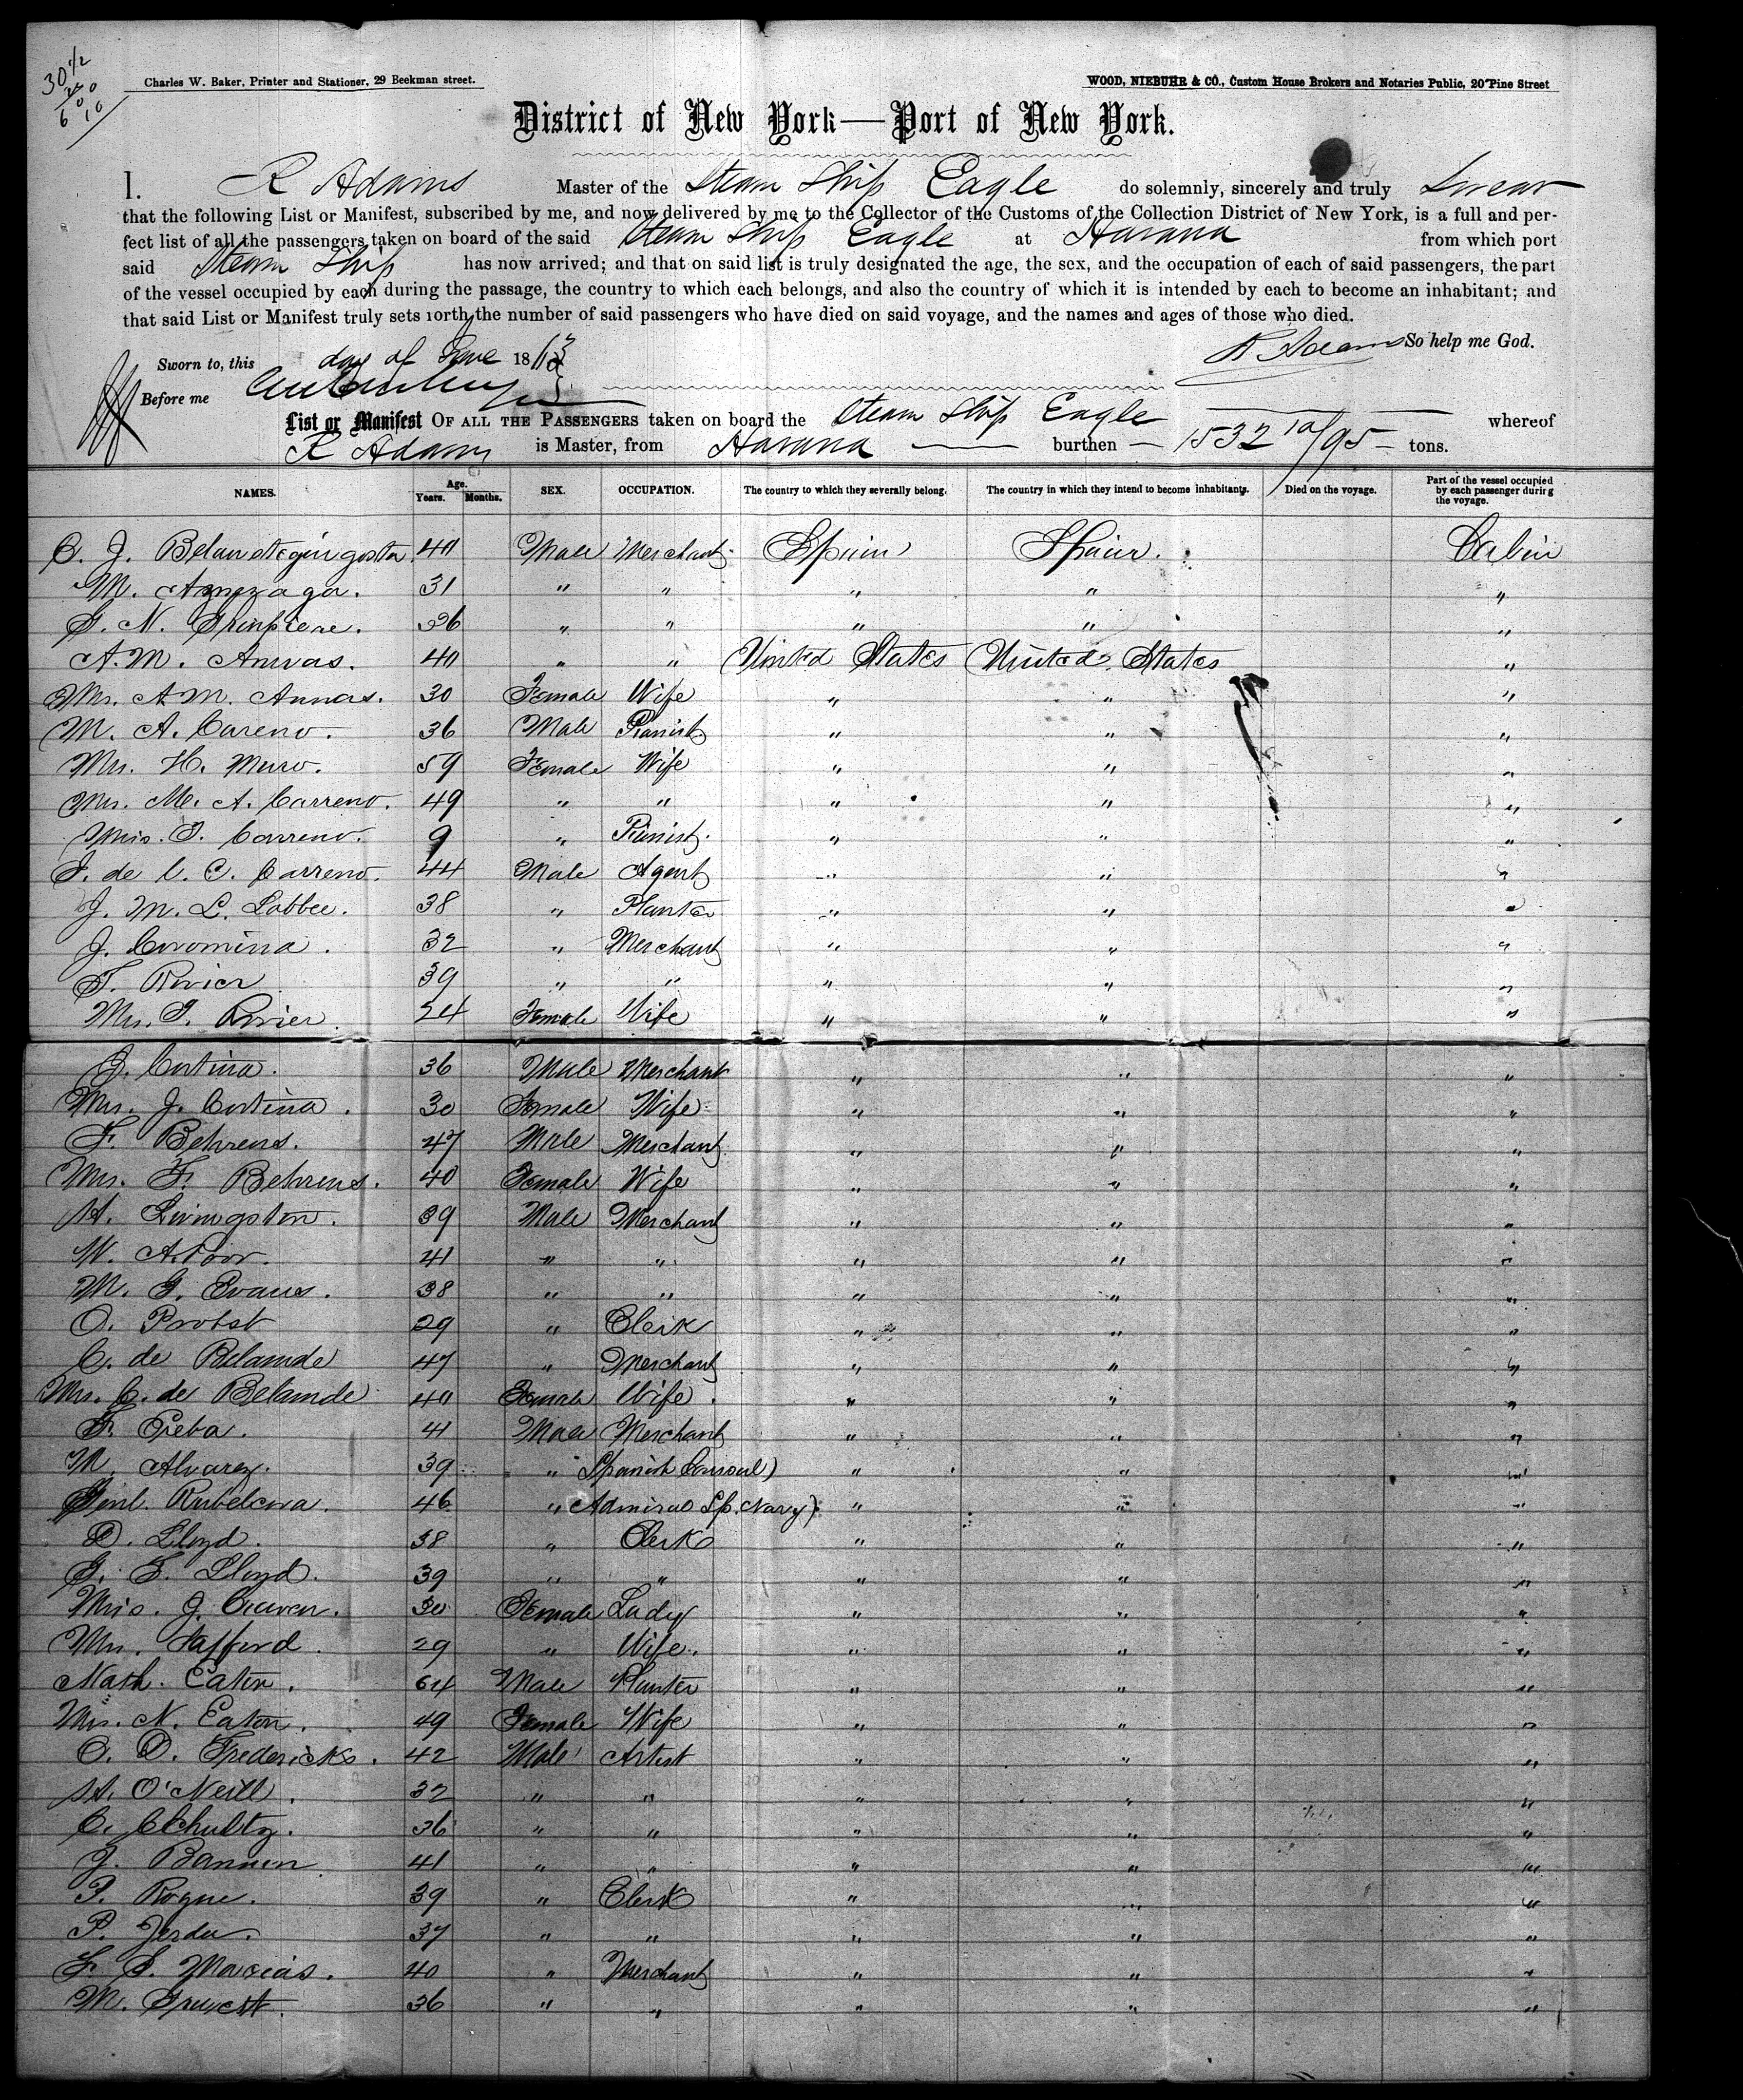 30 1/2
Charles W. Baker, Printer and Stationer, 29 Beekman street.
WOOD, NIEBUHR & CO., Custom House Brokers and Notaries Public, 20 Pine Street
District of New York—Port of New York.
I. R Adams Master of the Steam Ship Eagle do solemnly, sincerely and truly Swear
that the following List or Manifest, subscribed by me, and now delivered by me to the Collector of the Customs of the Collection District of New York, is a full and per-
fect list of all the passengers taken on board of the said Steam Ship Eagle at Havana from which port
said Steam Ship has now arrived; and that on said list is truly designated the age, the sex, and the occupation of each of said passengers, the part
of the vessel occupied by each during the passage, the country to which each belongs, and also the country of which it is intended by each to become an inhabitant; and
that said List or Manifest truly sets forth the number of said passengers who have died on said voyage, and the names and ages of those who died.
R Adams So help me God.
Sworn to, this day of June 186
Before me
List or Manifest OF ALL THE PASSENGERS taken on board the Steam Ship Eagle whereof
R Adams is Master, from Havana burthen 1532 10/95 tons.
NAMES. Age. Years. Months. SEX. OCCUPATION. The country to which they severally belong. The country in which they intend to become inhabitants. Died on the voyage. Part of the vessel occupied by each passenger during the voyage.
C. J. 40 Male Merchant Spain Spain. Cabin
M. 31 " " " " "
G. N. 36 " " " " "
A. M. 40 " " United States United States "
Mrs. A. M. 30 Female Wife " " "
M. A. Careno. 36 Male Pianist " " "
Mrs. H. Muro. 59 Female Wife " " "
Mrs. M. A. Carreno. 49 " " " " "
Miss. T. Carreno. 9 " Pianist. " " "
J. de l. C. Carreno. 44 Male Agent " " "
J. M. L. Labbee. 38 " Planter " " "
J. Coromina. 32 " Merchant " " "
T. Rivier 39 " " " " "
Mrs. T. Rivier. 24 Female Wife " " "
J. Cortina. 36 Male Merchant " " "
Mrs. J. Cortina. 30 Female Wife " " "
F. Behrens. 47 Male Merchant " " "
Mrs. F. Behrens. 40 Female Wife " " "
H. Livingston. 39 Male Merchant " " "
W. A. Poor. 41 " " " " "
M. G. Evans. 38 " " " " "
O. Probst 29 " Clerk " " "
C. de Belaunde 47 " Merchant " " "
Mrs. C. de Belaunde 40 Female Wife. " " "
F. 41 Male Merchant " " "
M. Alvarez. 39 " Spanish Consul) " " "
Genl. Rubelcava. 46 " Admiral Sp. Navy). " " "
D. Lloyd. 38 " Clerk " " "
G. F. Lloyd. 39 " " " " "
Miss. J. Craven. 30 Female Lady " " "
Mrs. Safford. 29 " Wife. " " "
Nath. Eaton. 64 Male Planter " " "
Mrs. N. Eaton. 49 Female Wife " " "
C. D. Fredericks. 42 Male Artist " " "
H. O'Neill. 32 " " " " "
C. Schultz. 36 " " " " "
J. Bannen 41 " " " " "
P. Rogue. 39 " Clerk " " "
P. Jerdu. 37 " " " " "
F. S. Macias. 40 " Merchant " " "
M. 36 " " " " "